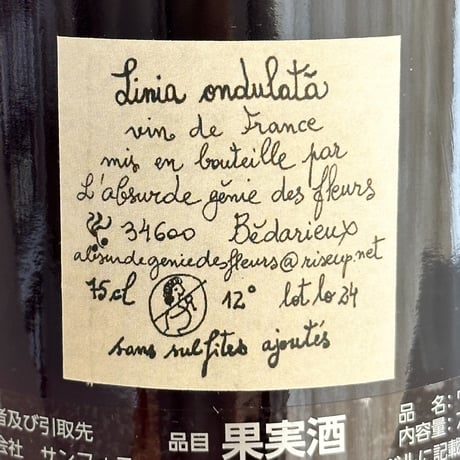 Linia ondulată
vin de France
mis en bouteille par
L'absurde génie des fleurs
34600 Bédarieux
absurdegeniedesfleurs@riseup.net
75cl 12° lot lo 24
sans sulfites ajoutés
者及び引取先
品目 果実酒
品名:
内容量:
会社 サンフォ
ベルに記載